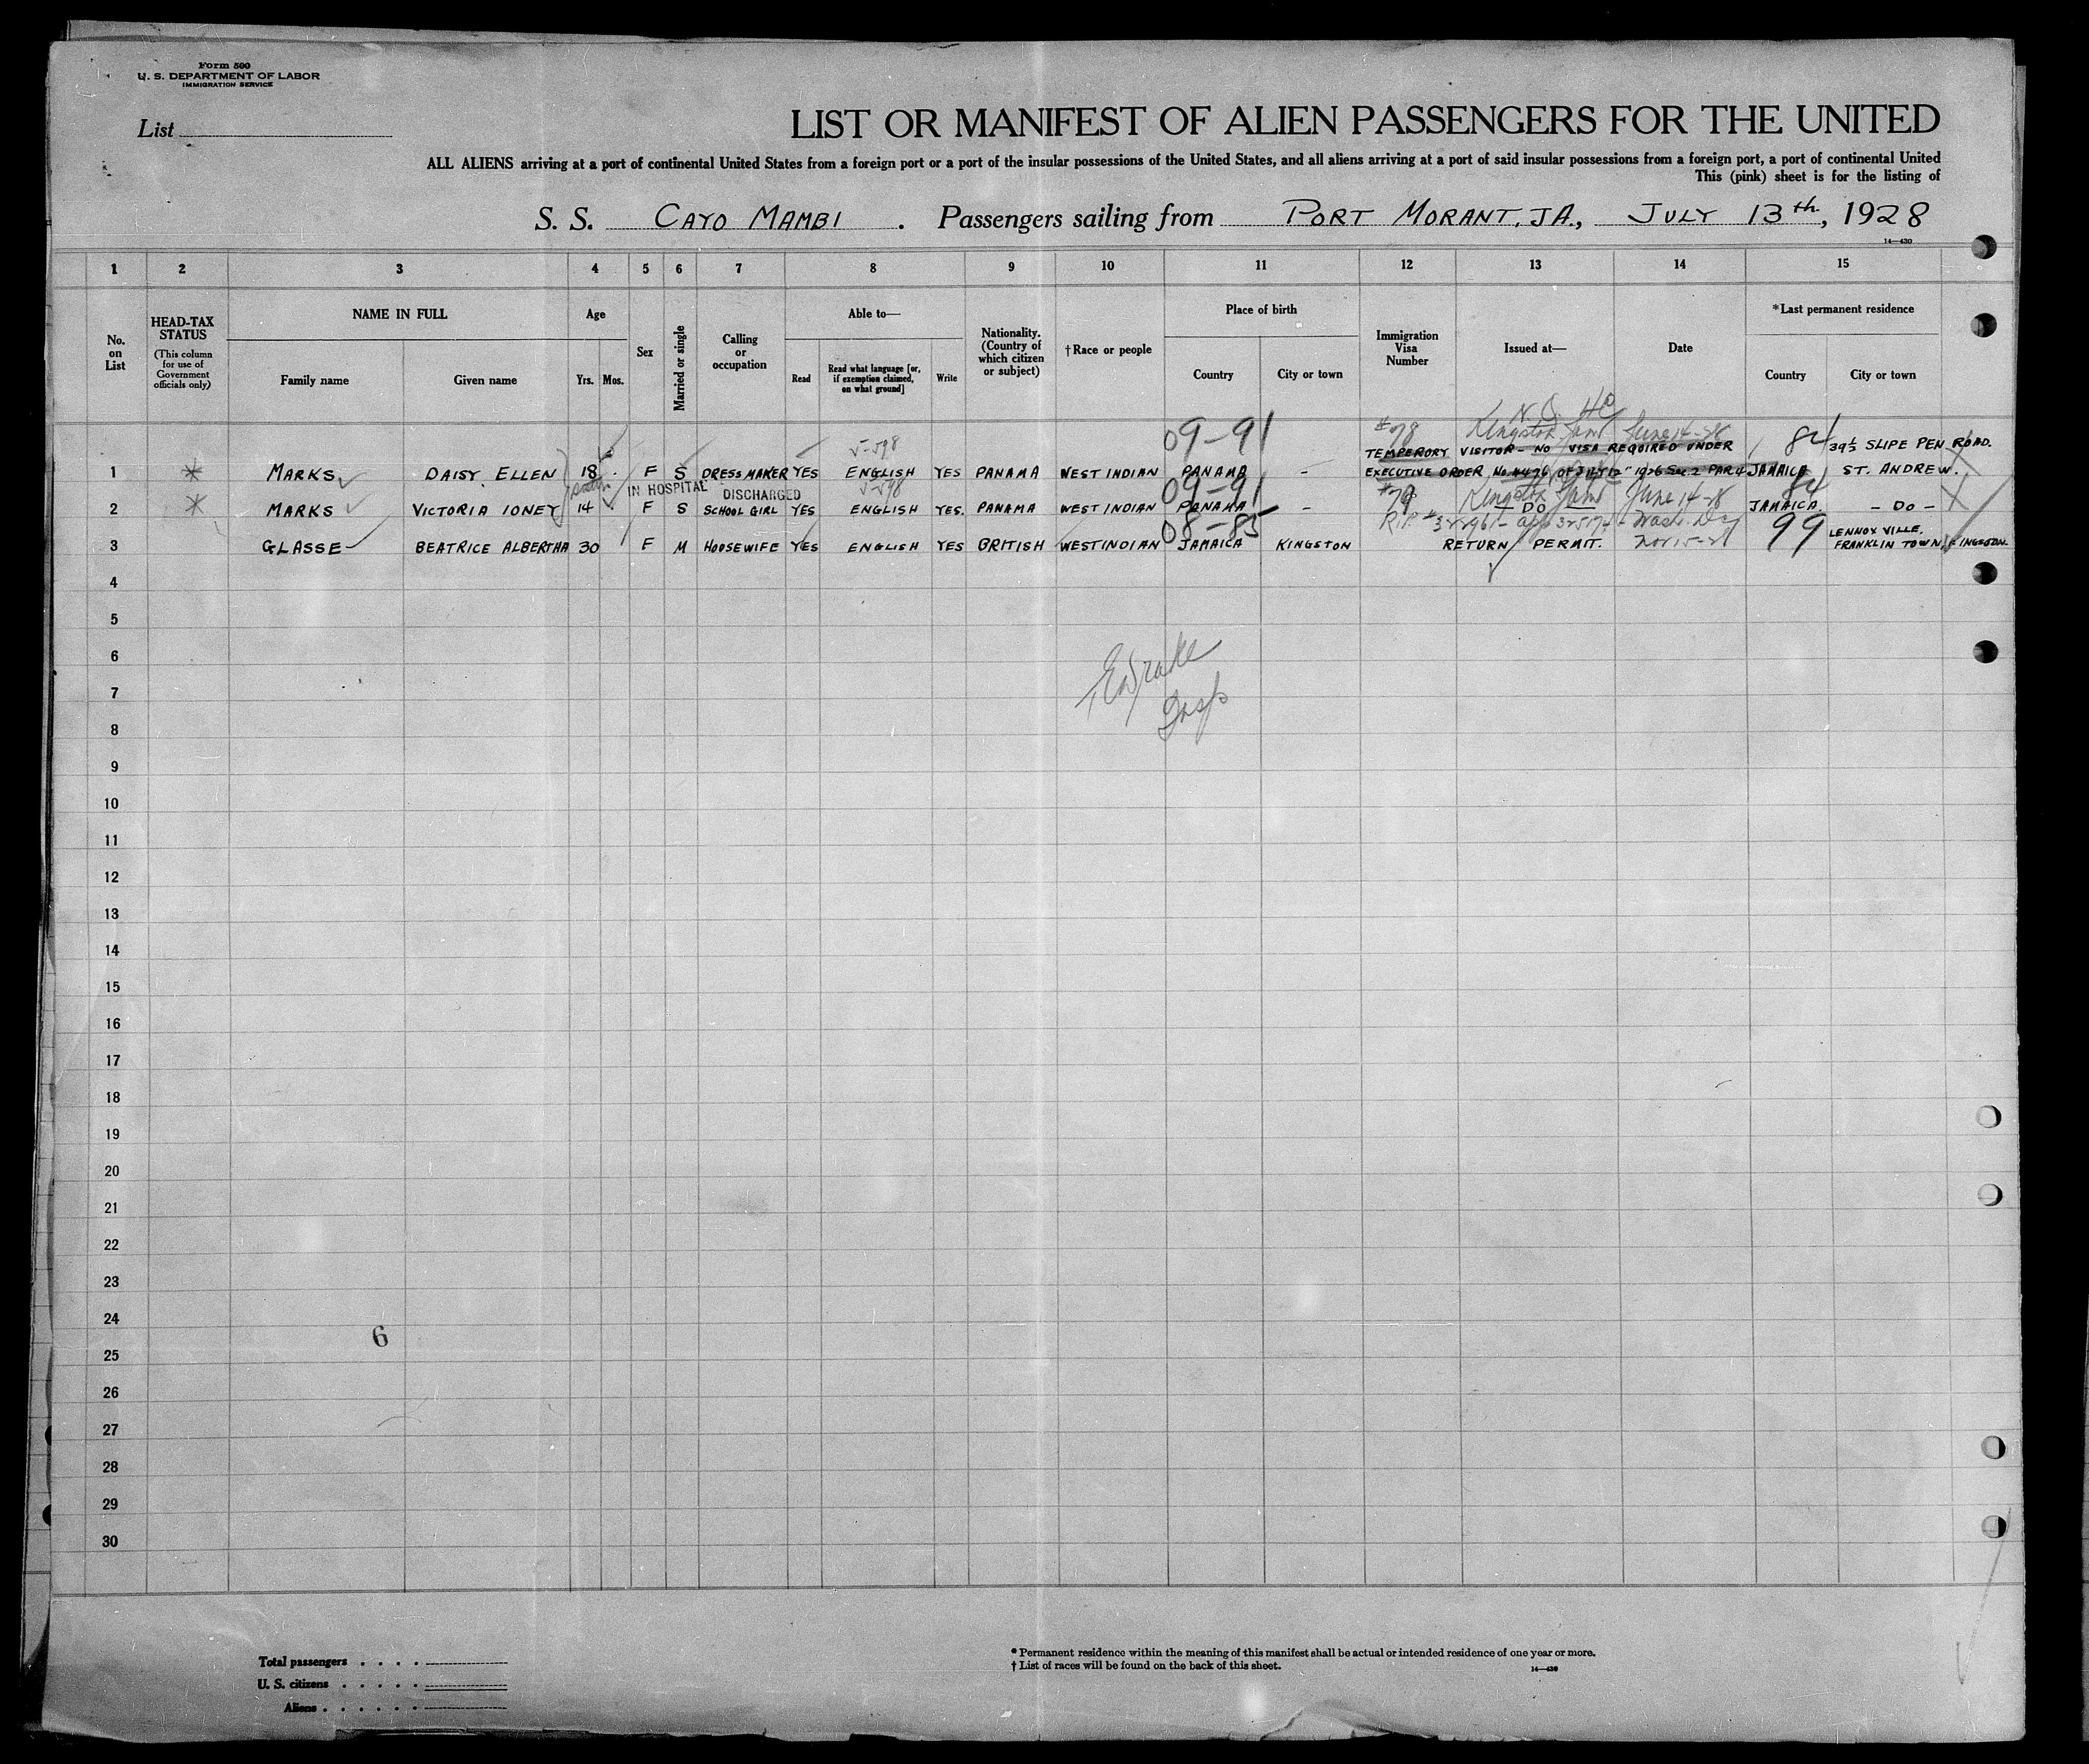 Form 500
U. S. DEPARTMENT OF LABOR
IMMIGRATION SERVICE
List
LIST OR MANIFEST OF ALIEN PASSENGERS FOR THE UNITED
ALL ALIENS arriving at a port of continental United States from a foreign port or a port of the insular possessions of the United States, and all aliens arriving at a port of said insular possessions from a foreign port, a port of continental United
This (pink) sheet is for the listing of
S. S. CAYO MAMBI . Passengers sailing from PORT MORANT, JA., JULY 13th, 1928
14—430
1 2 3 4 5 6 7 8 9 10 11 12 13 14 15
No. on List
HEAD-TAX STATUS
(This column for use of Government officials only)
NAME IN FULL
Family name
Given name
Age
Yrs. Mos.
Sex
Married or single
Calling or occupation
Able to—
Read
Read what language [or, if exemption claimed, on what ground]
Write
Nationality. (Country of which citizen or subject)
†Race or people
Place of birth
Country
City or town
Immigration Visa Number
Issued at—
Date
*Last permanent residence
Country
City or town
N. Q.
09-91 #78 Kingston Jam June 14-28 84 39½ SLIPE PEN ROAD.
TEMPERORY VISITOR - NO VISA REQUIRED UNDER
1 * MARKS DAISY ELLEN 18 F S DRESSMAKER YES ENGLISH YES PANAMA WEST INDIAN PANAMA - EXECUTIVE ORDER No. 4476 OF JULY 12" 1926 SEC 2 PAR 4 JAMAICA ST. ANDREW.
IN HOSPITAL DISCHARGED
09-91 #79 Kingston Jam June 14-28 84
2 * MARKS VICTORIA IONEY 14 F S SCHOOL GIRL YES ENGLISH YES. PANAMA WEST INDIAN PANAMA - — DO — JAMAICA. - DO -
08-85 R.P. Wash. Nov 15-27 99 LENNOX VILLE,
3 GLASSE BEATRICE ALBERTHA 30 F M HOUSEWIFE YES ENGLISH YES BRITISH WEST INDIAN JAMAICA KINGSTON RETURN PERMIT. FRANKLIN TOWN, KINGSTON.
4
5
6
7
Insp
8
9
10
11
12
13
14
15
16
17
18
19
20
21
22
23
24
6
25
26
27
28
29
30
Total passengers . . . .
U. S. citizens . . . . .
Aliens . . . . . .
* Permanent residence within the meaning of this manifest shall be actual or intended residence of one year or more.
† List of races will be found on the back of this sheet.
14—430